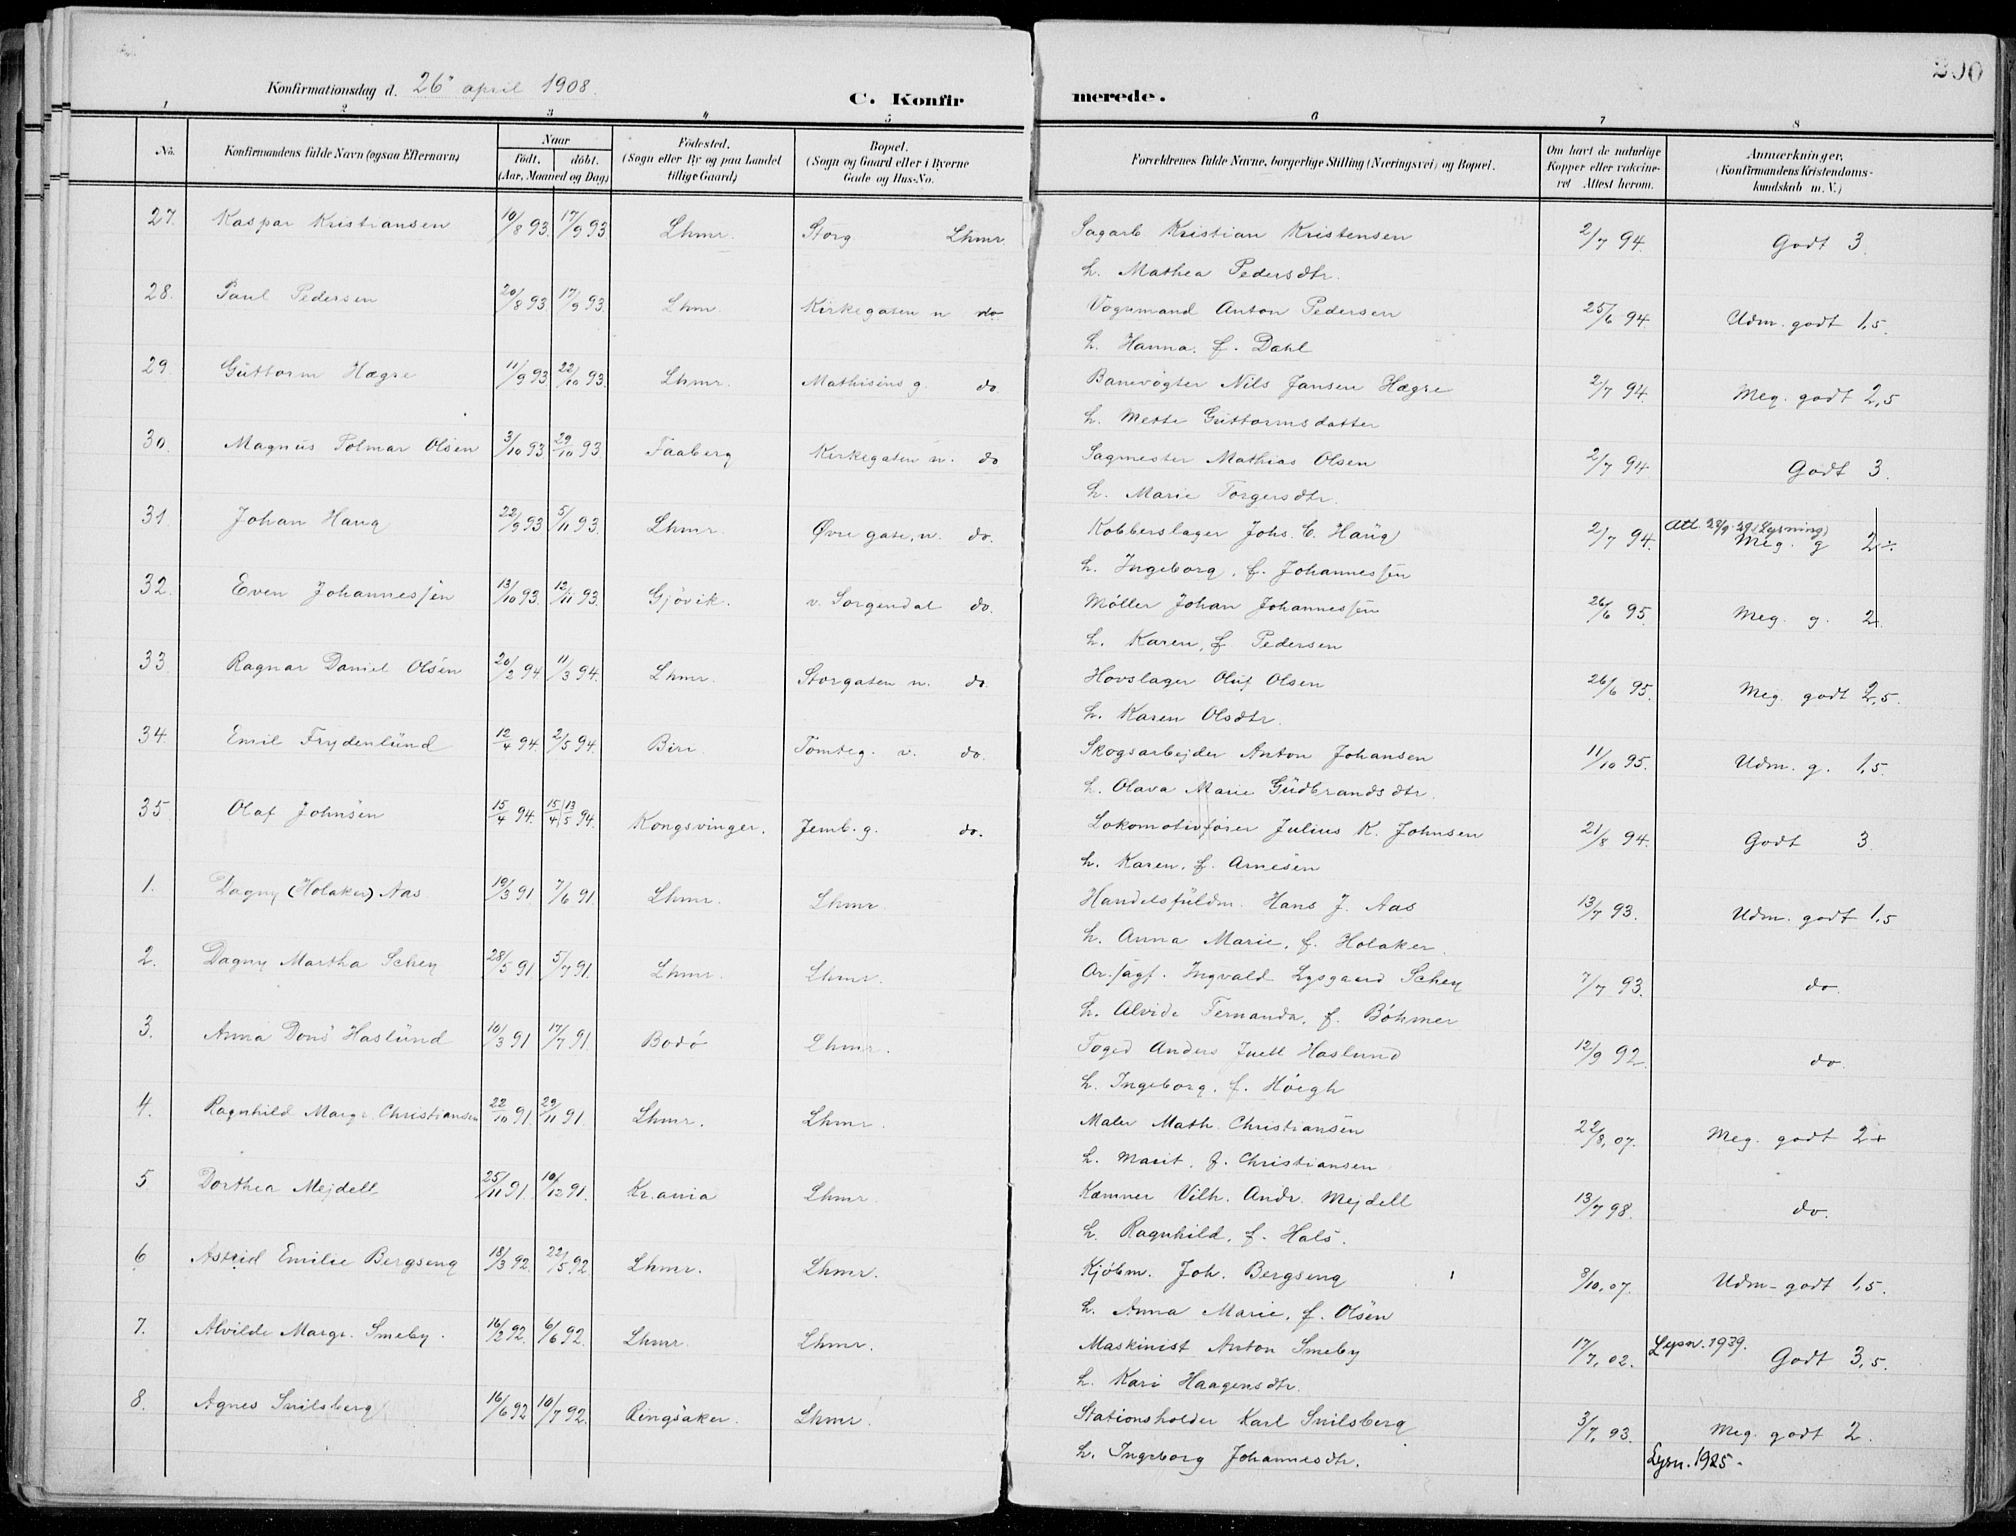 200
Konfirmationsdag d. 26' april 1908.
C. Konfirmerede.
1 2 3 4 5 6 7 8
No.
Konfirmandens fulde Navn (ogsaa Efternavn)
Naar
födt. döbt.
(Aar, Maaned og Dag)
Födested.
(Sogn eller By og paa Landet tillige Gaard)
Bopæl.
(Sogn og Gaard eller i Byerne Gade og Hus-No.
Forældrenes fulde Navne, borgerlige Stilling (Næringsvei) og Bopæl.
Om havt de naturlige Kopper eller vakcineret Attest herom.
Anmærkninger.
(Konfirmandens Kristendomskundskab m. V.)
27. Kaspar Kristiansen 10/8 93. 17/9 93 Lhmr. Storg Lhmr. Sagarb. Kristian Kristensen 2/7 94. Godt 3.
h. Mathea Pedersdtr.
28. Paul Pedersen 20/8 93 17/9 93. Lhm Kirkegaten n do Vognmand Anton Pedersen 25/6 94. Udm. godt 1,5.
h. Hanna. f. Dahl
29. Guttorm Hægre 11/9 93 22/10 93. Lhmr. Mathisens g. do. Banevogter Nils Jansen Hægre 2/7 94. Meg. godt 2,5
h. Mette Guttormsdatter
30. Magnus Tolmar Olsen 3/10 93. 29/10 93. Faaberg Kirkegaten n. do Sagmester Mathias Olsen 2/7 94. Godt 3.
h. Marie Torgersdtr.
31. Johan Haug 22/9 93 5/11 93. Lhmr. Øvre gate, n. do. Kobberslager Johs. C. Haug 2/7 94. Att. 23/9 29 (Lysning) Meg. g 2 ÷
h. Ingeborg, f. Johannessen
32. Even Johannessen 13/10 93. 12/11 93. Gjövik. v. Sorgendal do. Møller Johan Johannessen 26/6 95. Meg. g. 2.
h. Karen, f Pedersen
33. Ragnar Daniel Olsen 20/2 94 11/3 94. Lhmr. Storgaten n. do. Hovslager Oluf Olsen 26/6 95. Meg. godt 2,5.
h. Karen Olsdtr.
34. Emil Frydenlund 12/4 94 2/5 94. Biri Tomteg. v. do. Skogsarbejder Anton Johansen 11/10 95. Udm. g. 1,5.
h. Olava Marie Gudbrandsdtr.
35. Olaf Johnsen 15/4 94. 15/4 13/5 94. Kongsvinger. Jernb. g. do. Lokomotivfører Julius K. Johnsen 21/8 94. Godt 3
h. Karen. f. Arnesen
1. Dagny (Holaker) Aas 19/3 91 7/6 91. Lhmr. Lhmr. Handelsfuldm. Hans J. Aas 13/7 93. Udm. godt 1,5
h. Anna Marie, f. Holaker.
2. Dagny Martha Schey 28/5 91 5/7 91. Lhmr. Lhmr. Ingvald Lysgaard Schey 7/7 93. do.
h. Alvide Fernanda, f. Böhmer
3. Anna Dons Haslund 10/3 91 17/7 91. Bodö Lhmr. Foged Anders Juell Haslund 12/9 92. do.
h. Ingeborg. f. Höegh
4. Ragnhild Margr. Christiansen 22/10 91. 29/11 91. Lhmr. Lhmr. Maler Math. Christiansen 22/8, 07. Meg. godt 2+
h. Marit. f. Christiansen
5. Dorthea Mejdell 25/11 91. 10/12 91. Kr.ania Lhmr. Kæmner Vilh. Andr. Mejdell 13/7 98. do.
h. Ragnhild, f. Hals.
6 Astrid Emilie Bergseng 18/3 92. 22/5 92 Lhmr. Lhmr. Kjöbm. Joh. Bergseng 8/10, 07. Udm- godt 1,5.
h. Anna Marie, f. Olsen
7. Alvilde Margr. Smeby. 16/2 92. 6/6 92. Lhmr. Lhmr. Maskinist Anton Smeby 17/7, 02. Lysn. 1939. Godt 3,5.
h. Kari Haagensdtr.
8. Agnes Snilsberg 16/6 92 10/7 92. Ringsaker. Lhmr. Stationsholder Karl Snilsberg 3/7, 93. Meg. godt 2.
h. Ingeborg Johannesdtr. Lysn. 1925.